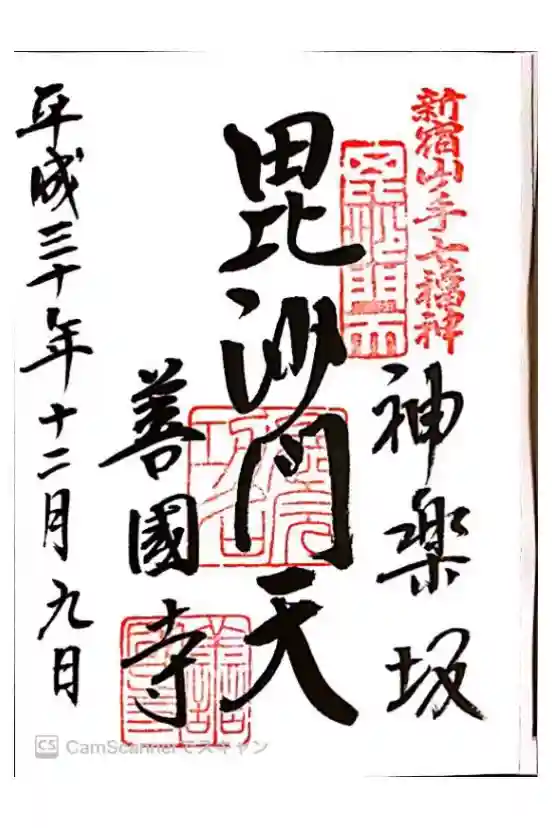 新宿山手七福神
神楽坂
毘沙門天
善國寺
平成三十年十二月九日
CS CamScannerでスキャン